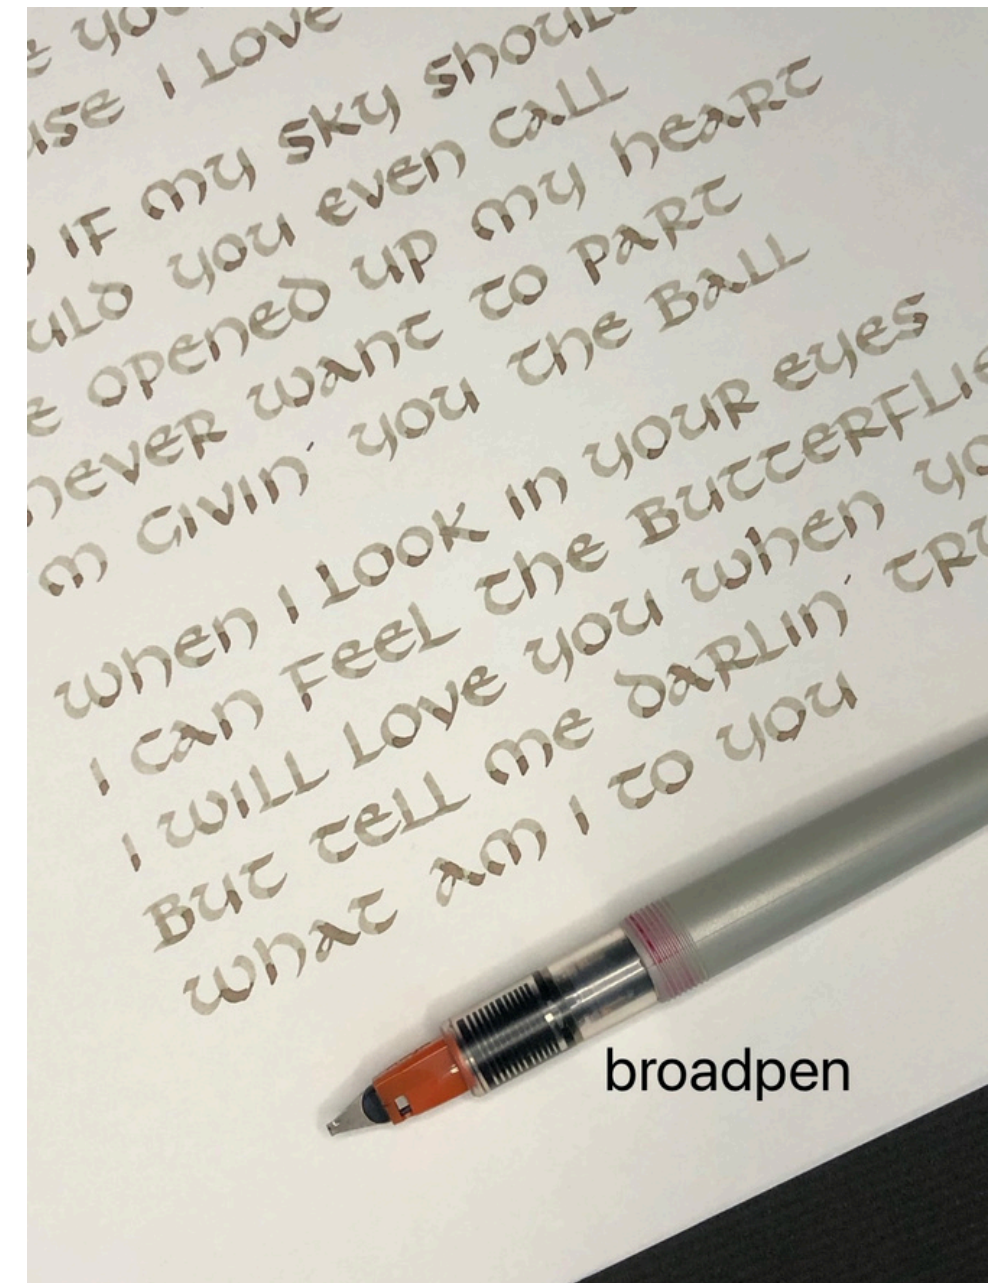 I LOVE
IF MY SKY
YOU EVEN CALL
OPENED UP MY HEART
NEVER WANT TO PART
GIVIN' YOU THE BALL
WHEN I LOOK IN YOUR EYES
I CAN FEEL THE
I WILL LOVE YOU WHEN
BUT TELL ME DARLIN'
WHAT AM I TO YOU
broadpen